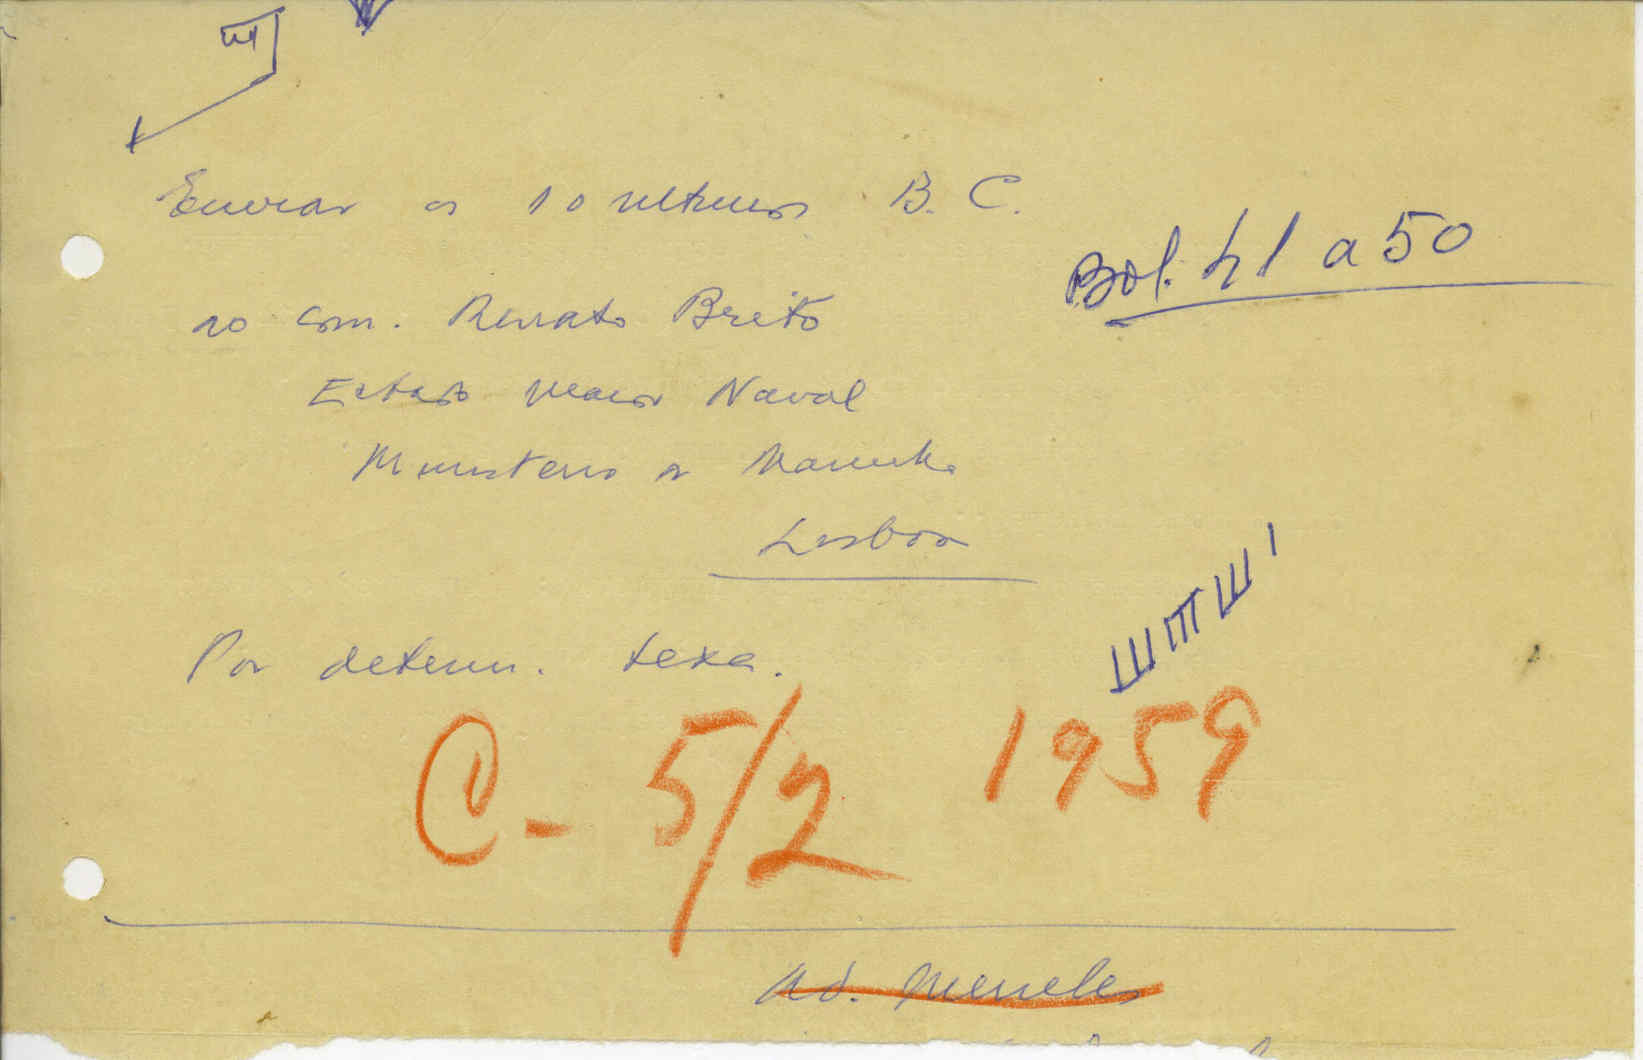 Enviar os 10 ultimos B. C.
Bol. 41 a 50
ao com. Renato Brito
Estado Maior Naval
Ministerio da Marinha
Lisboa
Por determ. texa.
C - 5/2 1959